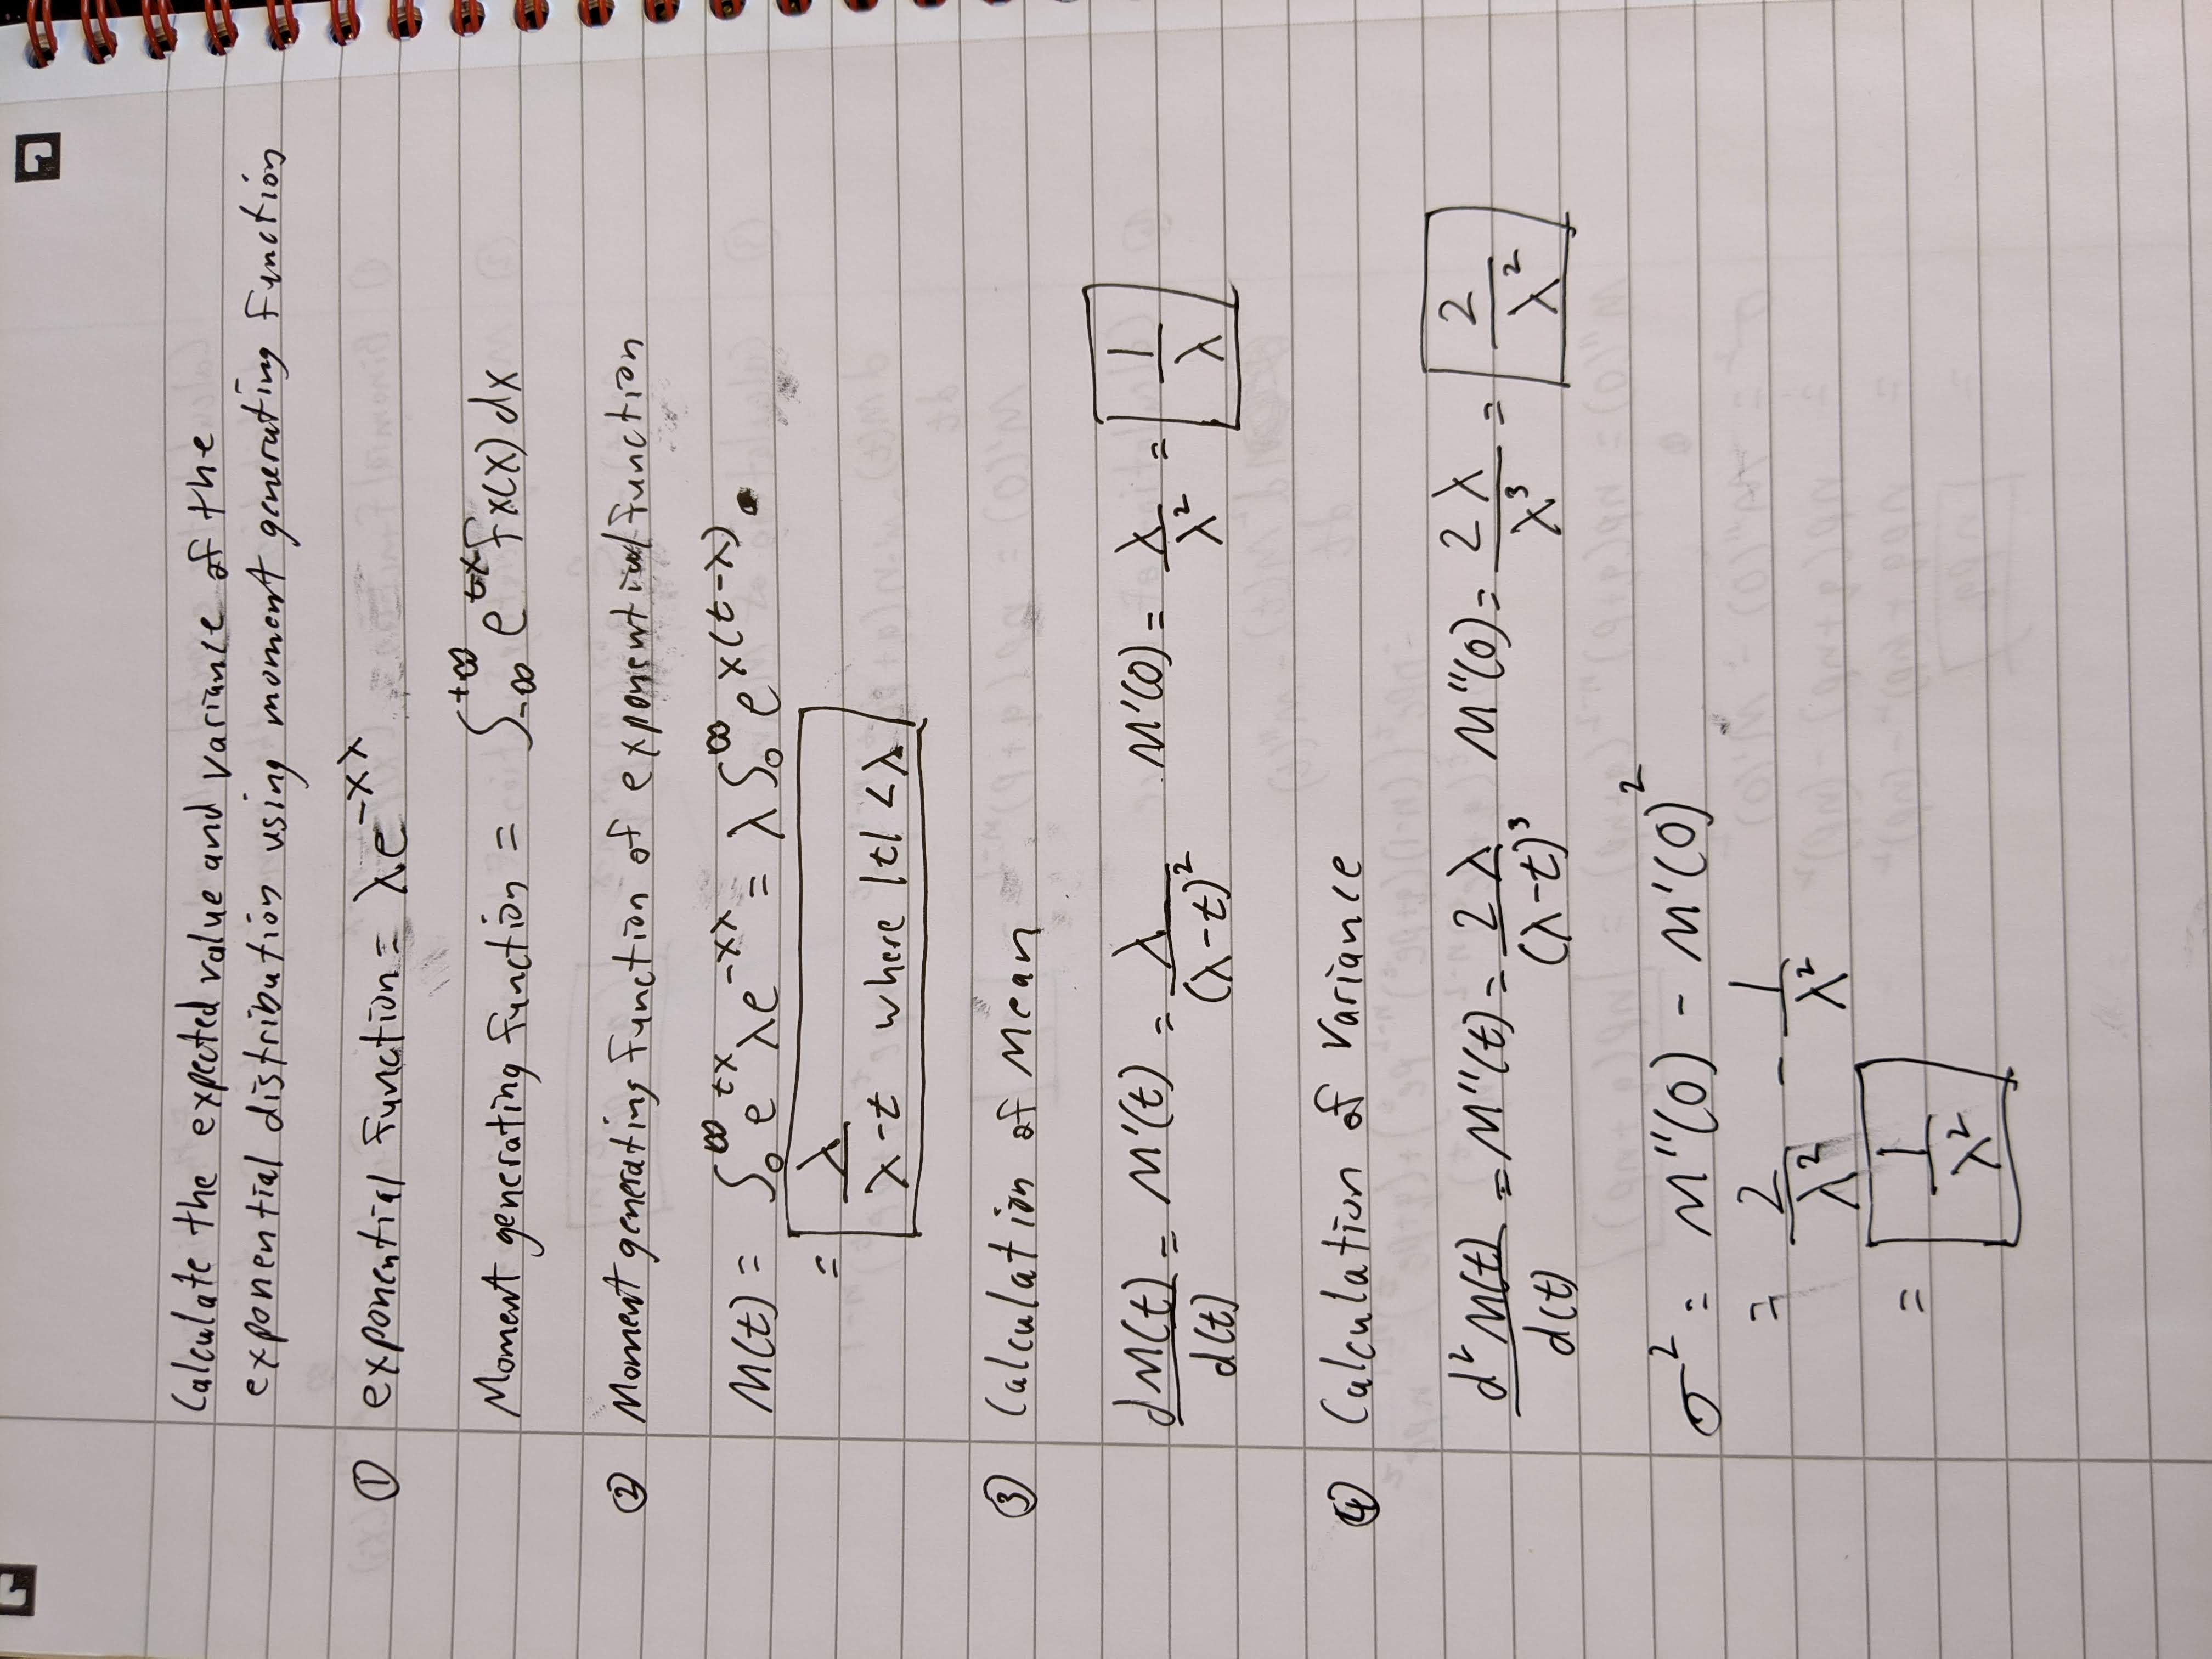 Calculate the expected value and variance of the
exponential distribution using moment generating function
① exponential function = λe^{-xλ}
Moment generating function = ∫_{-∞}^{+∞} e^{tx} fx(x) dx
② Moment generating function of exponential function
M(t) = ∫_0^∞ e^{tx} λe^{-xλ} = λ ∫_0^∞ e^{x(t-λ)}
= λ/(λ-t) where |t| < λ
③ Calculation of Mean
dM(t)/d(t) = M'(t) = λ/(λ-t)² M'(0) = λ/λ² = 1/λ
④ Calculation of Variance
d²M(t)/d(t) = M''(t) = 2λ/(λ-t)³ M''(0) = 2λ/λ³ = 2/λ²
σ² = M''(0) - M'(0)²
= 2/λ² - 1/λ²
= 1/λ²